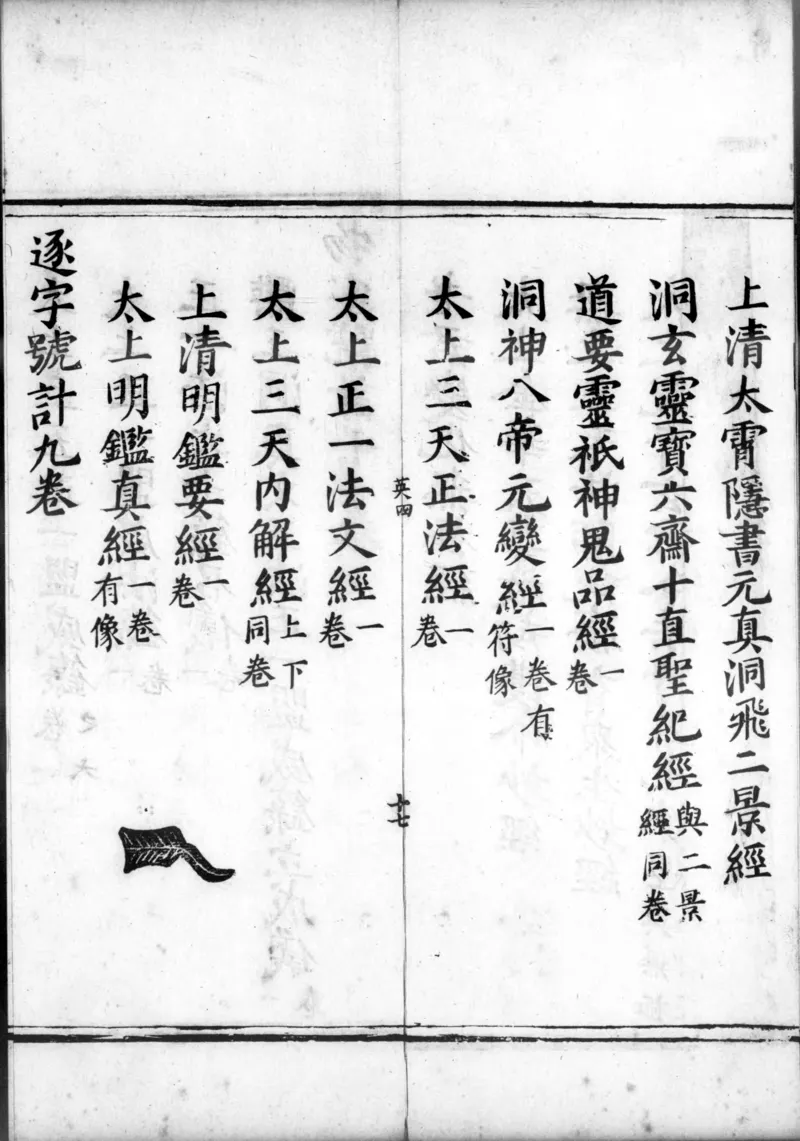 上清太霄隱書元真洞飛二景經
洞玄靈寶六齋十直聖紀經與二景經同卷
道要靈祇神鬼品經一卷
洞神八帝元變經一卷有符像
太上三天正法經一卷
英四
十七
太上正一法文經一卷
太上三天內解經上下同卷
上清明鑑要經一卷
太上明鑑真經一卷有像
逐字號計九卷